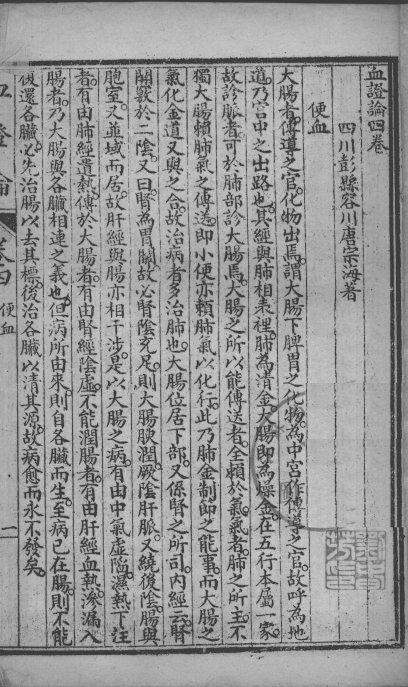 血證論四卷
四川彭縣容川唐宗海著
便血
大腸者傳導之官化物出焉謂大腸下脾胃之化物為中宮作傳導之官故呼為地
道乃宮中之出路也其經與肺相表裡肺為清金大腸即為燥金在五行本屬一家
故診脈者可於肺部診大腸焉大腸之所以能傳送者全賴於氣氣者肺之所主不
獨大腸賴肺氣之傳送即小便亦賴肺氣以化行此乃肺金制節之能事而大腸之
氣化金道又與之合故治病者多治肺也大腸位居下部又係腎之所司內經云腎
開竅於二陰又曰腎為胃關故必腎陰充足則大腸腴潤厥陰肝脈又繞後陰腸與
胞室又並域而居故肝經與腸亦相干涉是以大腸之病有由中氣虛陷濕熱下注
者有由肺經遺熱傳於大腸者有由腎經陰虛不能潤腸者有由肝經血熱滲漏入
腸者乃大腸與各臟相連之義也但病所由來則自各臟而生至病已在腸則不能
復還各臟必先治腸以去其標後治各臟以清其源故病愈而永不發矣
血證論
卷四 便血
一